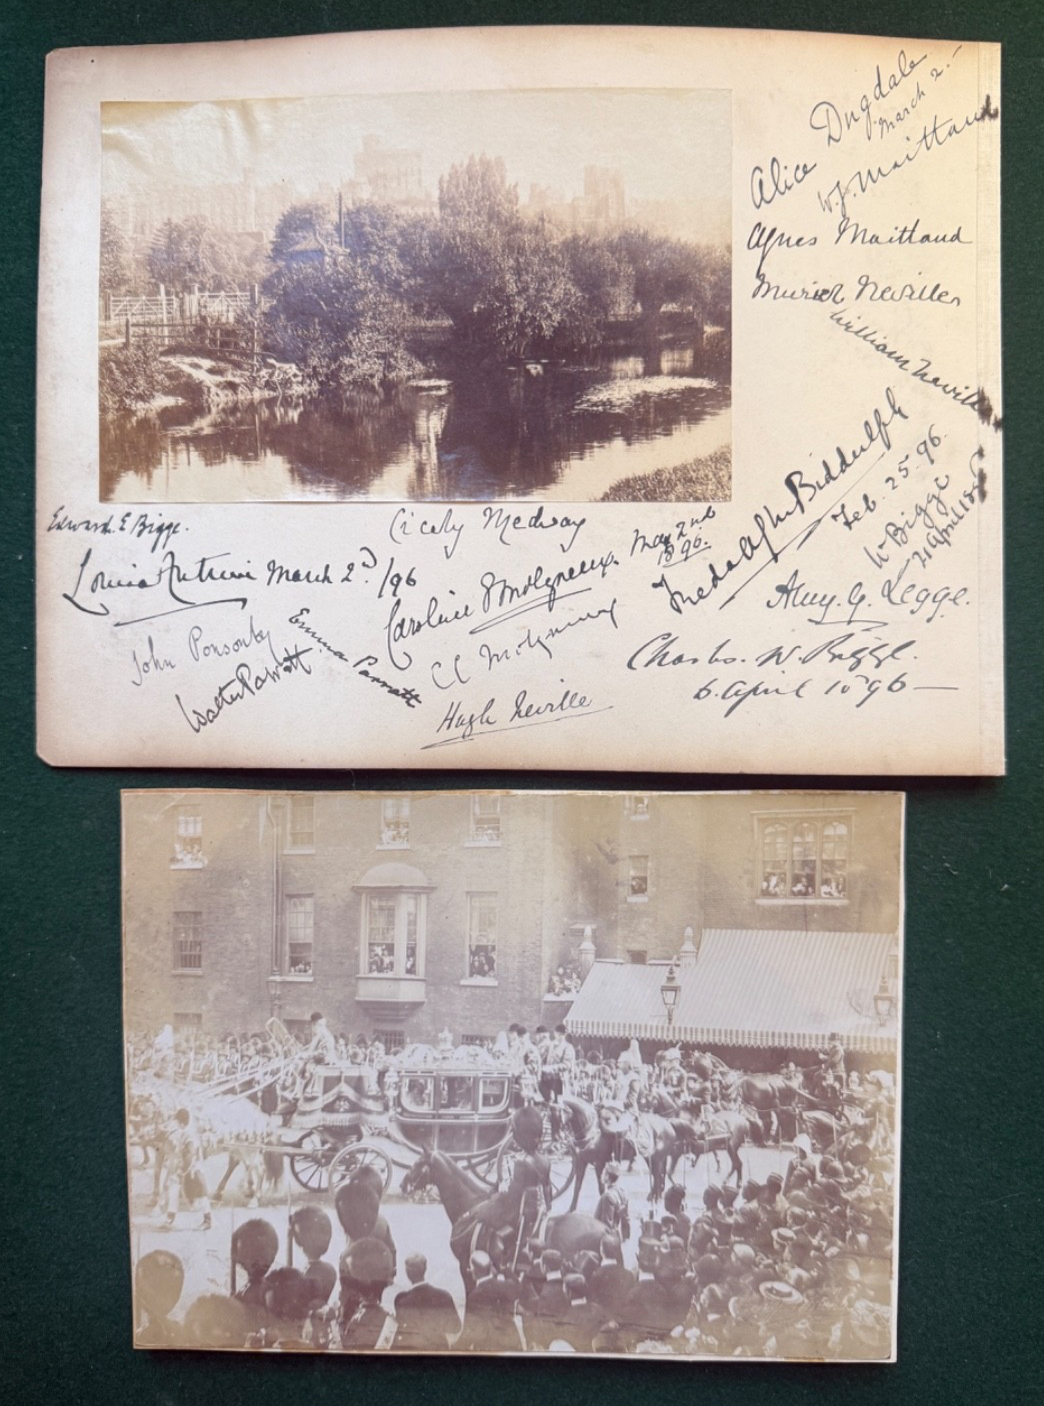 Alice Dugdale
March 2.-
W.J. Maitland
Agnes Maitland
Muriel Neville
William Neville
Freda Biddulph
Feb. 25. 96.
W Bigge
21 April 1896
Amy. G. Legge.
Edward. E Bigge.
Cicely Medway
Louisa Antrim March 2d/96
Caroline Molyneux. May 2nd
1896.
John Ponsonby
Walter Parratt
Emma Parratt
Hugh Neville
W. Bigge.
6. April 1896